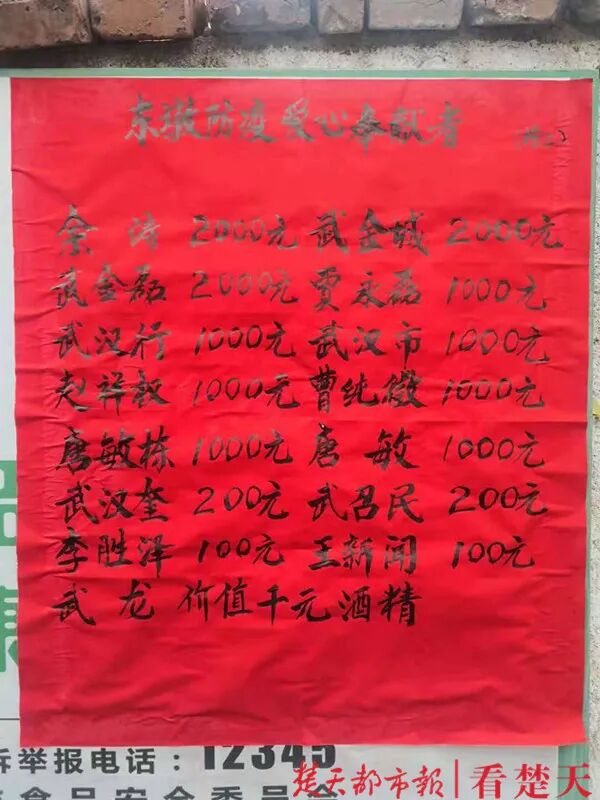 东墩防疫爱心奉献者
余涛 2000元 武金城 2000元
武金磊 2000元 贾永磊 1000元
武汉行 1000元 武汉市 1000元
赵祥权 1000元 曹纯傲 1000元
唐敏栋 1000元 唐敏 1000元
武汉奎 200元 武召民 200元
李胜泽 100元 王新闻 100元
武龙 价值千元酒精
诉举报电话：12345
食品安全委员会
楚天都市报|看楚天